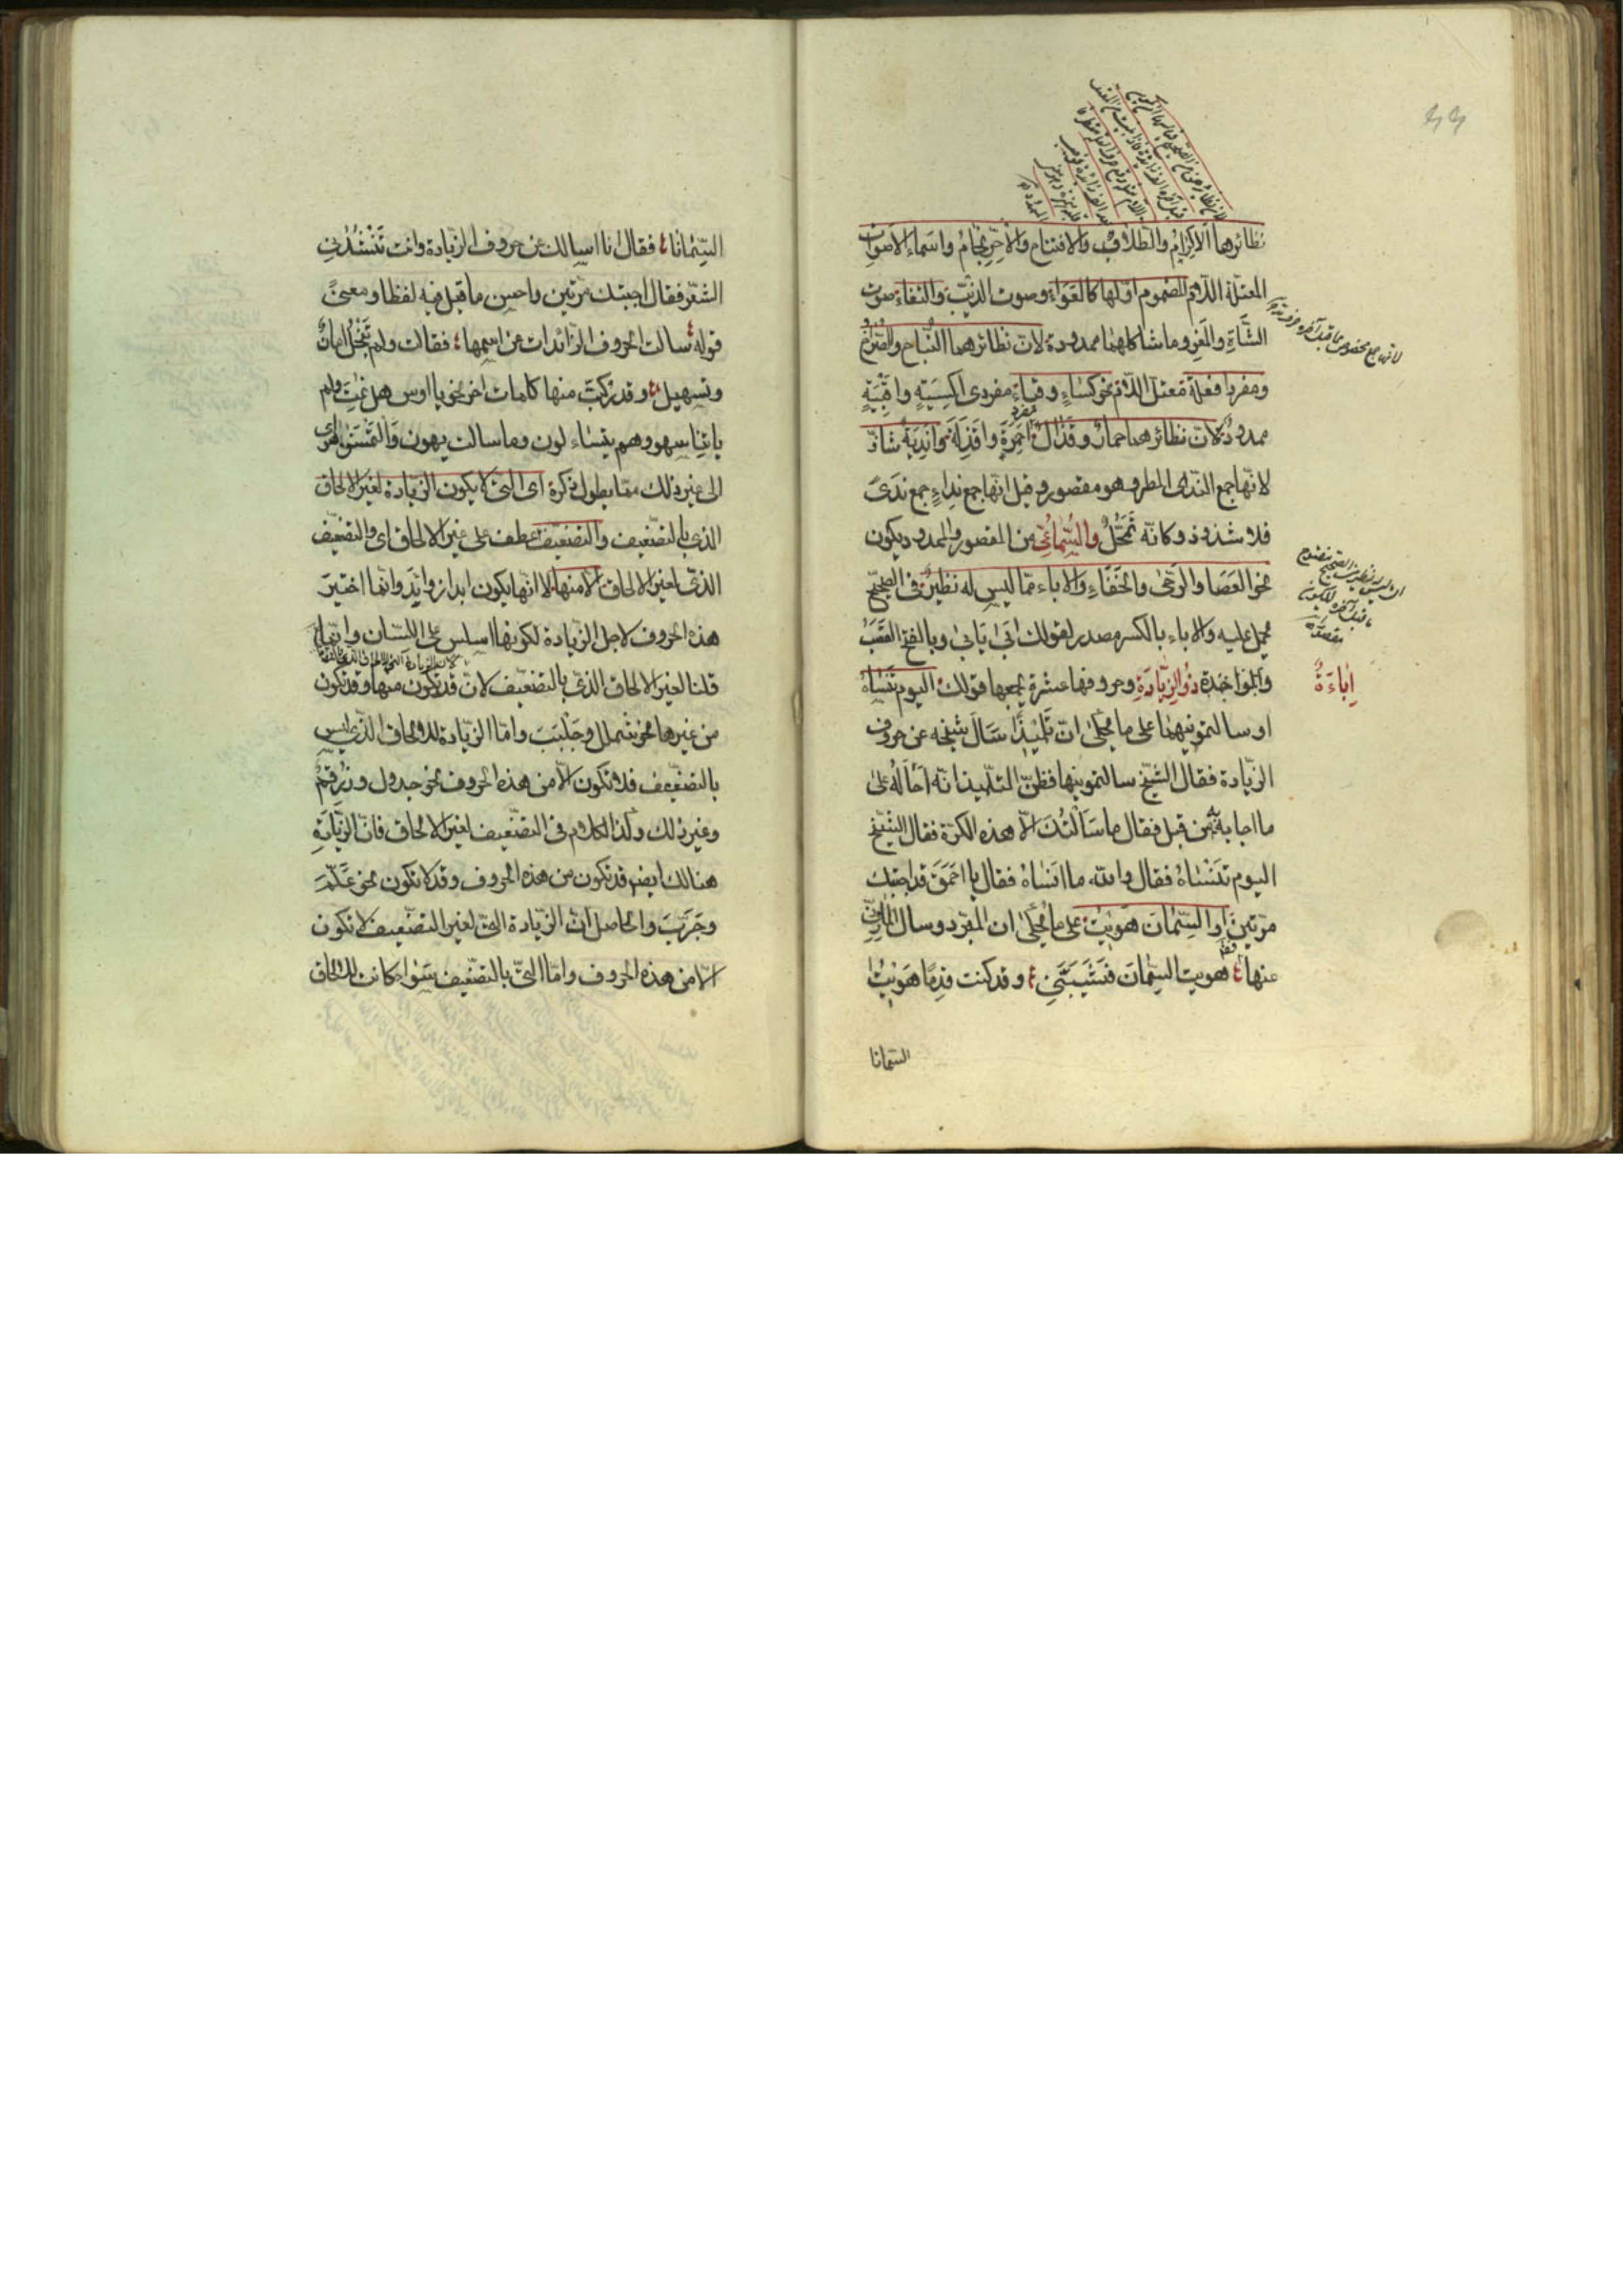 نظائرها الاكرام والطلاب والافتتاح والاحرنجام واسماء الاصوات
المعتلة اللام المضموم اولها كالعواء وصوت الذئب والثغاء صوت
الشاة والمعز وما شاكلهما ممدودة لان نظائرهما النباح والصراخ
ومفرد افعلة معتل اللام نحو كساء وقباء مفردى اكسية واقبية
ممدود لان نظائرهما حمار وقذال مفرد احمرة واقذلة واندية شاذ
لانها جمع الندى المطر وهو مقصور وقيل انها جمع نداء جمع ندى
فلا شذوذ وكانه تمحل والسماعى من المقصور والممدود يكون
نحو العصا والرحى والخفاء والاباء مما ليس له نظير فى الصحيح
يحمل عليه والاباء بالكسر مصدر لقولك ابى يابى وبالفتح القصب
والواحدة اباءة
ذو الزيادة وحروفها عشرة يجمعها قولك اليوم تنساه
او سالتمونيها على ما يحكى ان تلميذا سال شيخه عن حروف
الزيادة فقال الشيخ سالتمونيها فظن التلميذ انه احاله على
ما اجابه من قبل فقال ما سالتك الا هذه الكرة فقال الشيخ
اليوم تنساه فقال والله ما انساه فقال يا احمق قد اجبتك
مرتين او السمان هويت على ما يحكى ان المبرد وسال المازنى
عنها فقال هويت السمان فشيبننى وقد كنت قدما هويت
السمانا
السمانا فقال انا اسالك عن حروف الزيادة وانت تنشدنى
الشعر فقال اجبتك مرتين واحسن ما قيل فيه لفظا ومعنى
قوله سالت الحروف الزائدات عن اسمها فقالت ولم تبخل امان
وتسهيل وقد تركب منها كلمات اخر نحو يا اوس هل نمت ولم
ياتنا سهو وهم يتساءلون وما سالت يهون والتمسن هواى
الى غير ذلك مما يطول ذكره اى التى لا يكون الزيادة لغير الالحاق
الذى بالتضعيف والتضعيف عطف على غير الالحاق اى والتضعيف
الذى لغير الالحاق الا منها لا انها يكون ابدا زوايد وانما اختير
هذه الحروف لاجل الزيادة لكونها اسلس على اللسان وانما
قلنا لغير الالحاق الذى بالتضعيف لان قد تكون منها وقد تكون
من غيرها نحو شملل وجلبب واما الزيادة للالحاق الذى ليس
بالتضعيف فلا تكون الا من هذه الحروف نحو جدول وزرقم
وغير ذلك وكذا الكلام فى التضعيف لغير الالحاق فان الزيادة
هنالك ايضم قد تكون من هذه الحروف وقد لا تكون نحو علم
وجرب والحاصل ان الزيادة التى لغير التضعيف لا تكون
الا من هذه الحروف واما التى بالتضعيف سواء كانت للالحاق